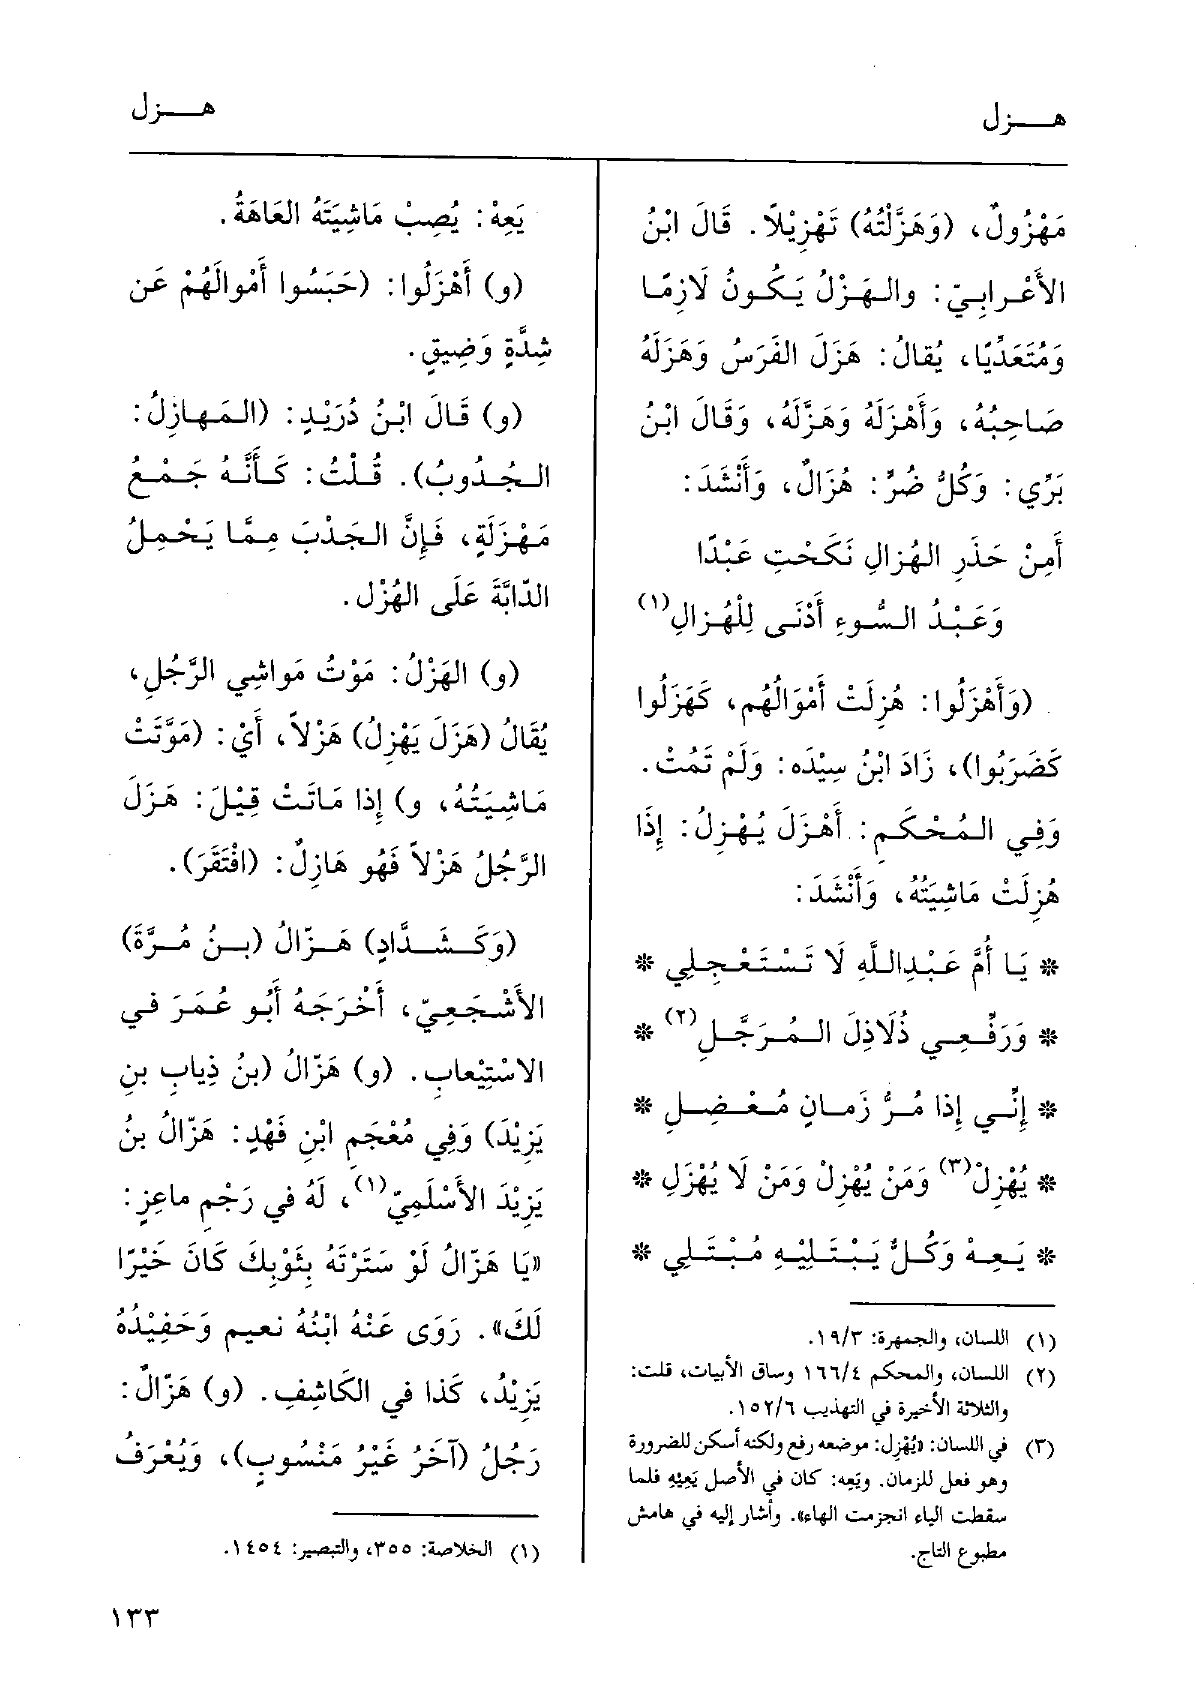 هـــزل
هـــزل
مَهْزُولٌ، (وَهَزَّلْتُهُ) تَهْزِيْلاً. قَالَ ابْنُ
الأَعْرابِيّ: والهَزْلُ يَكُونُ لَازِمًا
وَمُتَعَدِّيًا، يُقالُ: هَزَلَ الفَرَسُ وَهَزَلَهُ
صَاحِبُهُ، وَأَهْزَلَهُ وَهَزَّلَهُ، وَقَالَ ابْنُ
بَرِّي: وَكُلُّ ضُرٍّ: هُزَالٌ، وَأَنْشَدَ:
أَمِنْ حَذَرِ الهُزالِ نَكَحْتِ عَبْدًا
وَعَبْدُ السُّوءِ أَدْنَى لِلْهُزالِ(١)
(وَأَهْزَلُوا: هُزِلَتْ أَمْوَالُهُم، كَهَزَلُوا
كَضَرَبُوا)، زَادَ ابْنُ سِيْدَه: وَلَمْ تَمُتْ.
وَفِي المُحْكَمِ: أَهْزَلَ يُهْزِلُ: إِذَا
هُزِلَتْ مَاشِيَتُهُ، وَأَنْشَدَ:
* يَا أُمَّ عَبْدِاللَّهِ لَا تَسْتَعْجِلِي *
* وَرَفِّعِي ذُلَاذِلَ المُرَجَّلِ(٢) *
* إِنِّي إِذا مُرُّ زَمانٍ مُعْضِلِ *
* يُهْزِلْ(٣) وَمَنْ يُهْزِلْ وَمَنْ لَا يُهْزَلِ *
* يَعِهْ وَكُلٌّ يَبْتَلِيْهِ مُبْتَلِي *
(١) اللسان، والجمهرة: ١٩/٣.
(٢) اللسان، والمحكم ١٦٦/٤ وساق الأبيات، قلت:
والثلاثة الأخيرة في التهذيب ١٥٢/٦.
(٣) في اللسان: «يُهْزِل: موضعه رفع ولكنه أسكن للضرورة
وهو فعل للزمان. ويَعِه: كان في الأصل يَعِيْهِ فلما
سقطت الياء انجزمت الهاء». وأشار إليه في هامش
مطبوع التاج.
يَعِهْ: يُصِبْ مَاشِيَتَهُ العَاهَةُ.
(و) أَهْزَلُوا: (حَبَسُوا أَمْوالَهُمْ عَن
شِدَّةٍ وَضِيقٍ.
(و) قَالَ ابْنُ دُرَيْدٍ: (المَهازِلُ:
الجُدُوبُ). قُلْتُ: كَأَنَّهُ جَمْعُ
مَهْزَلَةٍ، فَإِنَّ الجَدْبَ مِمَّا يَحْمِلُ
الدّابَّةَ عَلَى الهُزْل.
(و) الهَزْلُ: مَوْتُ مَواشِي الرَّجُلِ،
يُقَالُ (هَزَلَ يَهْزِلُ) هَزْلاً، أَيْ: (مَوَّتَتْ
مَاشِيَتُهُ، و) إِذا مَاتَتْ قِيْلَ: هَزَلَ
الرَّجُلُ هَزْلاً فَهُو هَازِلٌ: (افْتَقَرَ).
(وَكَشَدَّادٍ) هَزّالُ (بنُ مُرَّةَ)
الأَشْجَعِيّ، أَخْرَجَهُ أَبُو عُمَرَ في
الاسْتِيْعابِ. (و) هَزّالُ (بنُ ذِيابِ بنِ
يَزِيْدَ) وَفِي مُعْجَمِ ابْنِ فَهْدٍ: هَزّالُ بنُ
يَزِيْدَ الأَسْلَمِيّ(١)، لَهُ في رَجْمِ ماعِزٍ:
«يَا هَزّالُ لَوْ سَتَرْتَهُ بِثَوْبِكَ كَانَ خَيْرًا
لَكَ». رَوَى عَنْهُ ابْنُهُ نعيم وَحَفِيْدُهُ
يَزِيْدُ، كَذا في الكَاشِفِ. (و) هَزّالٌ:
رَجُلٌ (آخَرُ غَيْرُ مَنْسُوبٍ)، وَيُعْرَفُ
(١) الخلاصة: ٣٥٥، والتبصير: ١٤٥٤.
١٣٣